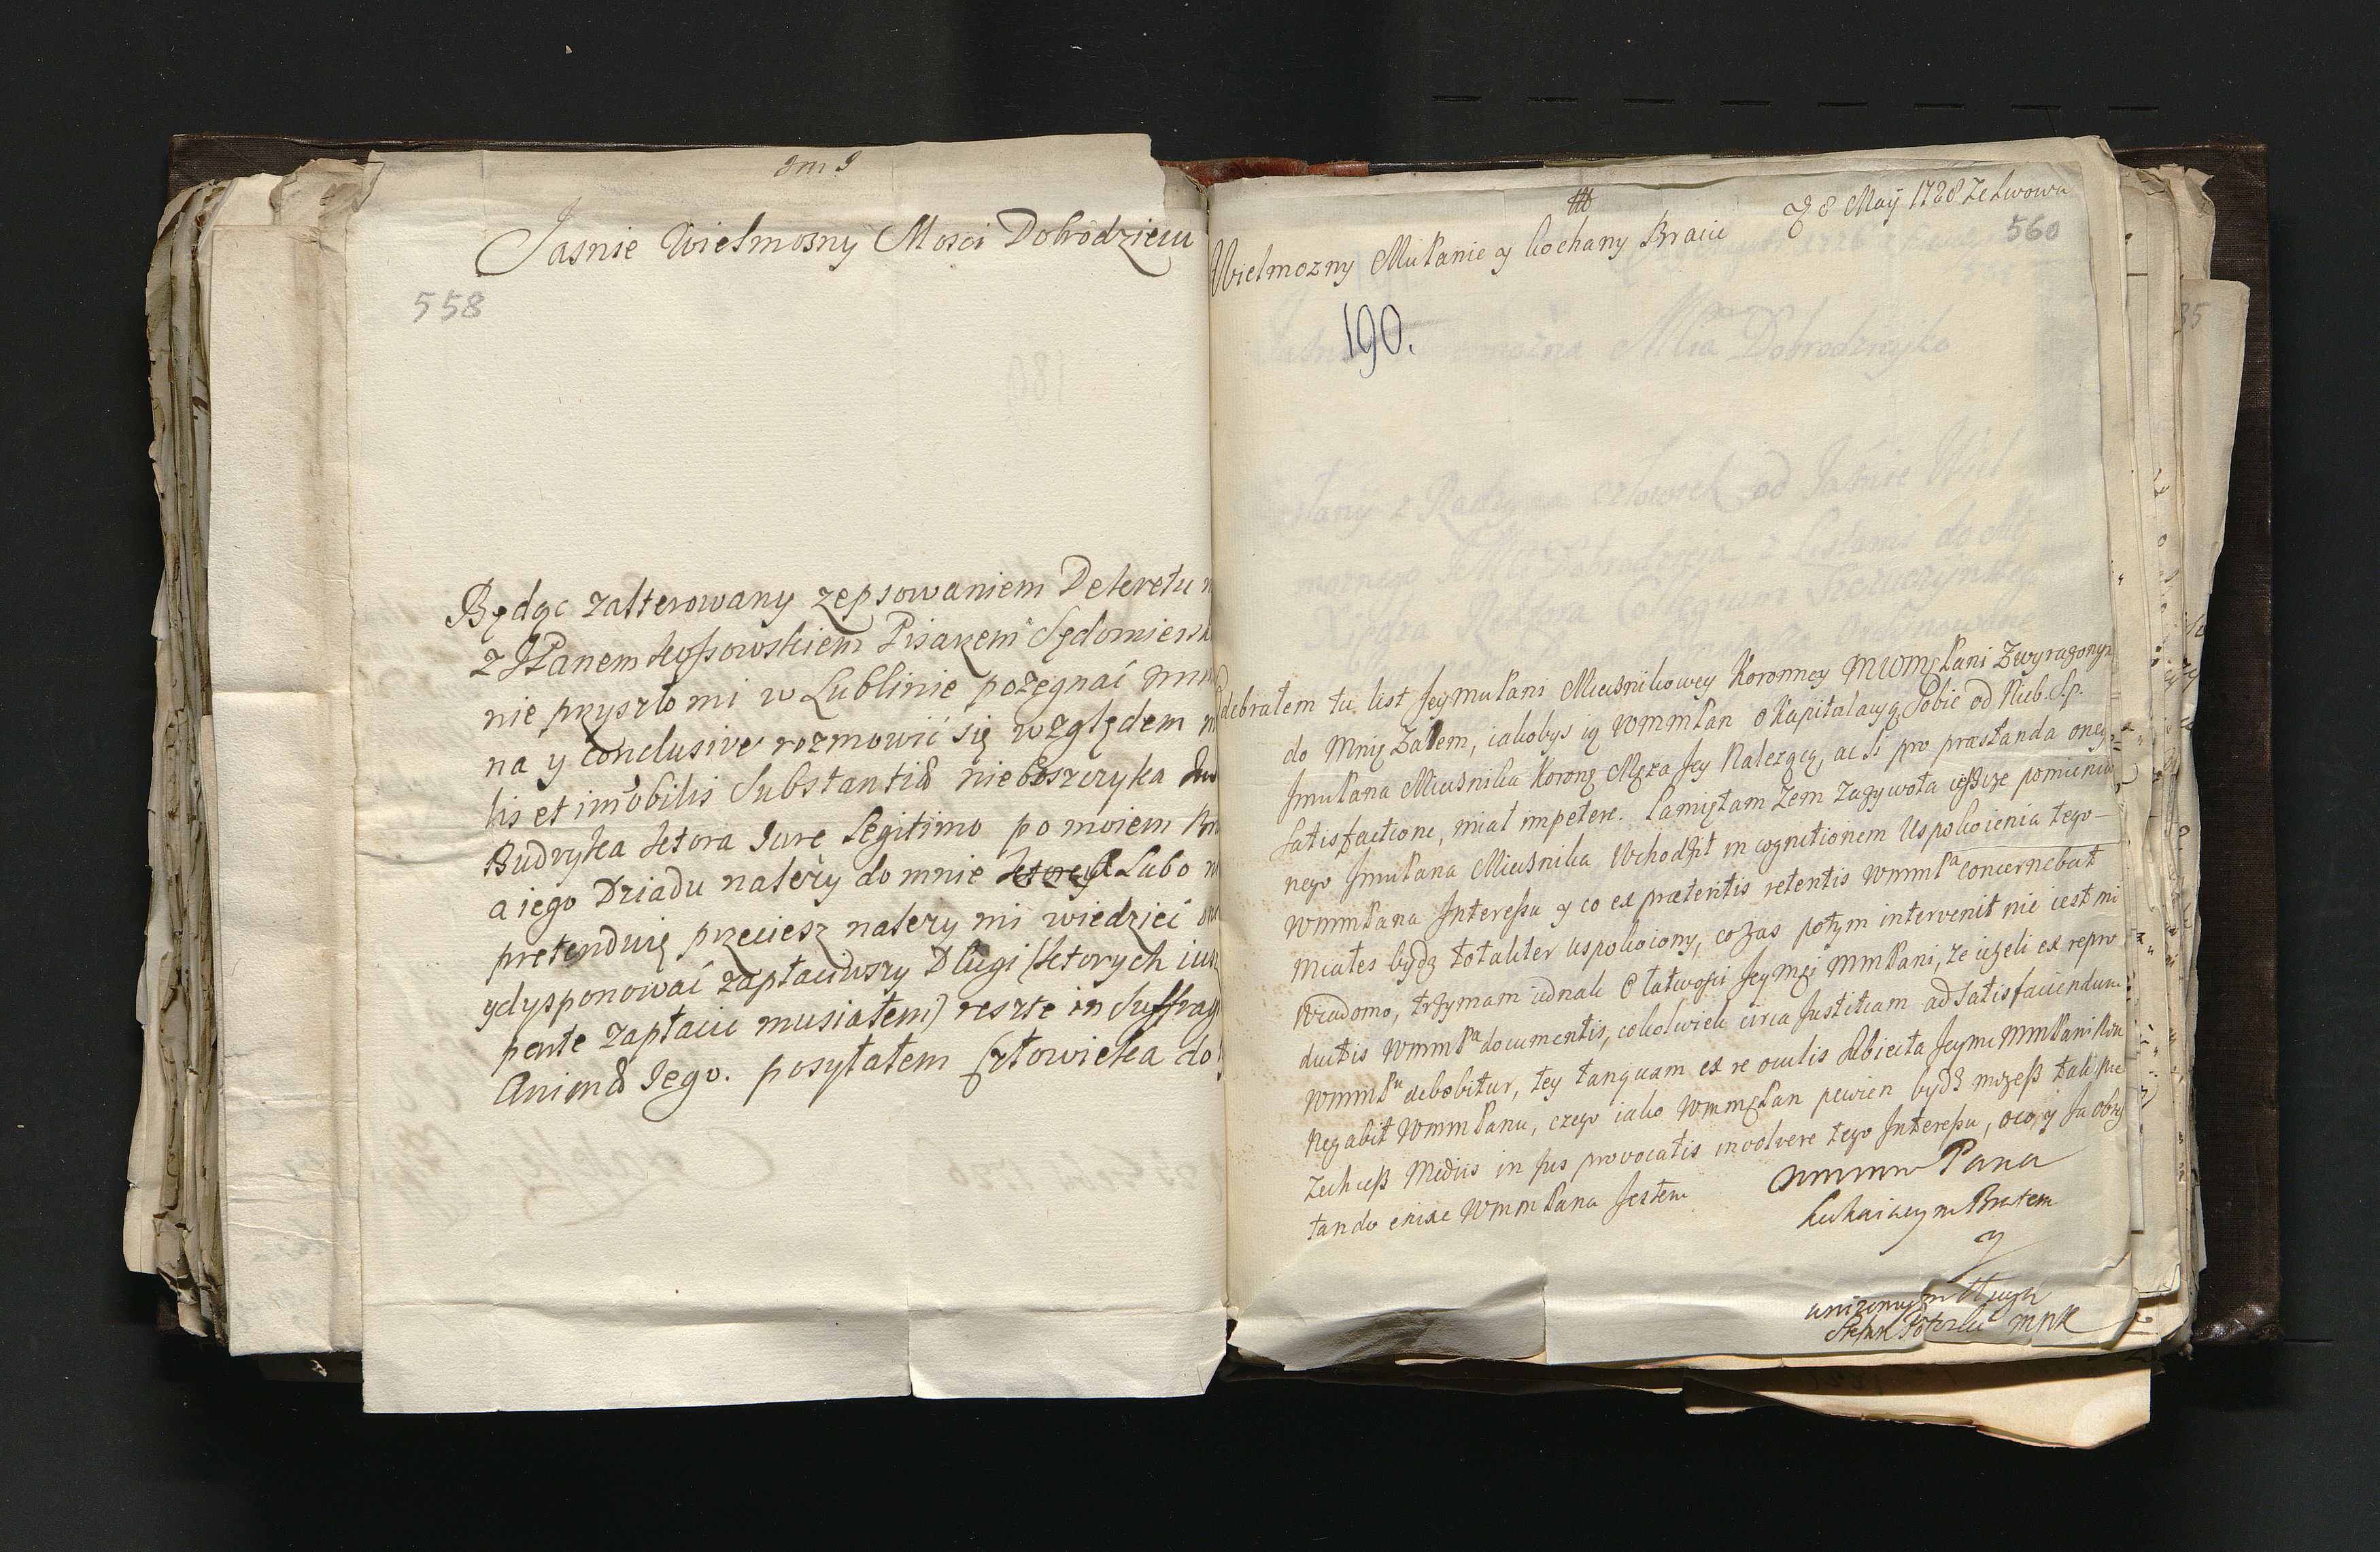 Jasnie Wielmozny Mosci Dobrodzieiu
558
Będąc zalterowany zepsowaniem Dekretu
z JPanem Kossowskiem Pisarzem Sędomiersk
nie przyszło mi w Lublinie pożegnać
na y conclusive rozmowić się względem
lis et imobilis Substantiæ nieboszczyka
Budryka ktora Jure Legitimo po moiem
a iego Dziadu należy do mnie Lubo
pretenduię przeciesz należy mi wiedzieć
ydysponować zapłaciwszy Długi (ktorych iusz
perte zapłacic musiałem) reszte in Suffrag
Animæ Jego. posyłałem Człowieka do
D 8 Maÿ 1728 ze Lwowa
560
Wielmozny Mu Panie y Kochany Bracie
190.
Odebrałem tu list Jeymu Pani Miecznikowey Koronney MWMPani Zwyrazonym
do Mnię Zalem, iakobys ią WMMPan o Kapitał Sobie od Nieb. S.p.
Jmu Pana Miecznika Koron Męża Jey Nalezący, ac si pro præstanda oney
Satisfactione, miał impetere. Pamiętam Zem Zazywota ieszcze pomienio
nego Jmu Pana Miecznika Wchodził in cognitionem Uspokoienia tego
WMMPana Interessu y co ex præteritis retentis WMMPa concernebat
Miałes bydz totaliter uspokoiony, co zas potym intervenit nie iest mi
Wiadomo, trzymam iednak o łatwosci Jeymsci MMPani, ze iezeli ex repro
ductis WMMPa documentis, cokolwiek circa Justitiam ad Satisfaciendum
WMMPu debebitur, tey tanquam ex re oculis Subiecta Jeymu MMPani Non
Negabit WMMPanu, czego iako WMMPan pewien bydz mozesz tak nie
Zechcesz Mediis in Jus provocatis involvere tego Interessu, oco, y Ja obtes
tando enixe WMMPana Jestem
WMMM Pana
Kochaiącym Bratem
y
unizonym Sługą
Stefan Potocki mpk